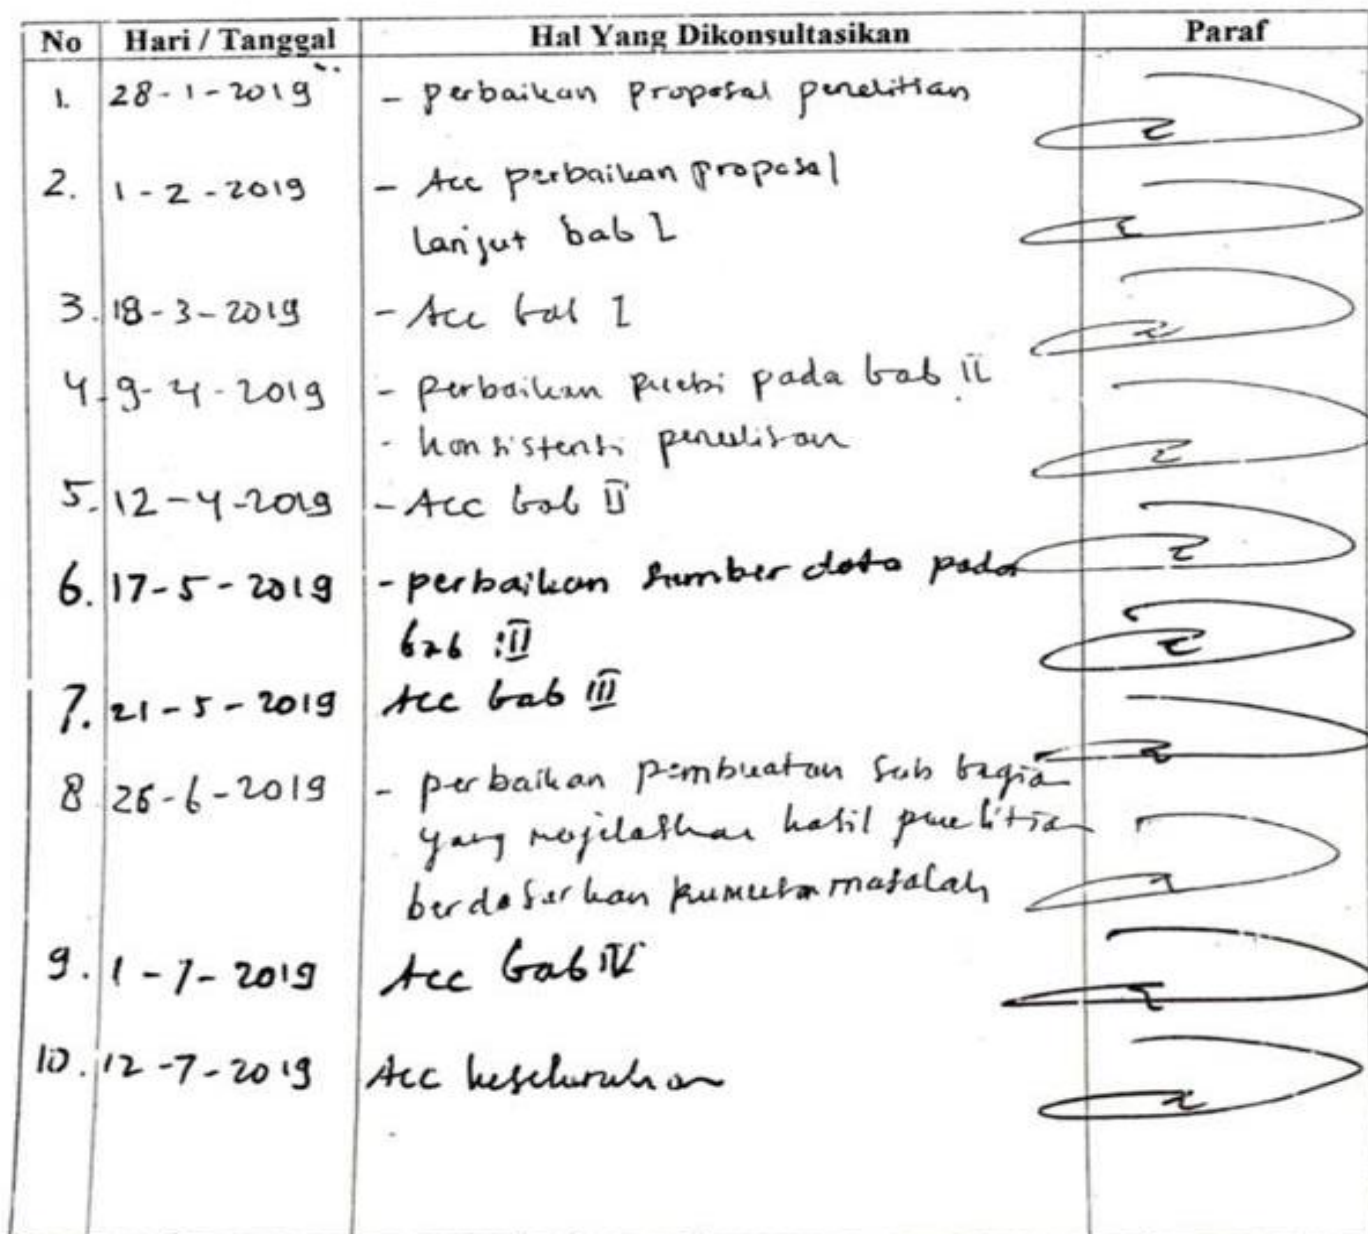 No Hari / Tanggal Hal Yang Dikonsultasikan Paraf
1. 28-1-2019 - perbaikan proposal penelitian
2. 1-2-2019 - Acc perbaikan proposal
lanjut bab I
3. 18-3-2019 - Acc bab I
4. 9-4-2019 - perbaikan puebi pada bab II
- konsistensi penulisan
5. 12-4-2019 - Acc bab II
6. 17-5-2019 - perbaikan sumber data pada
bab III
7. 21-5-2019 Acc bab III
8 26-6-2019 - perbaikan pembuatan sub bagia
yang mejelaskan hasil penelitian
berdasarkan rumusan masalah
9. 1-7-2019 Acc bab IV
10. 12-7-2019 Acc keseluruhan